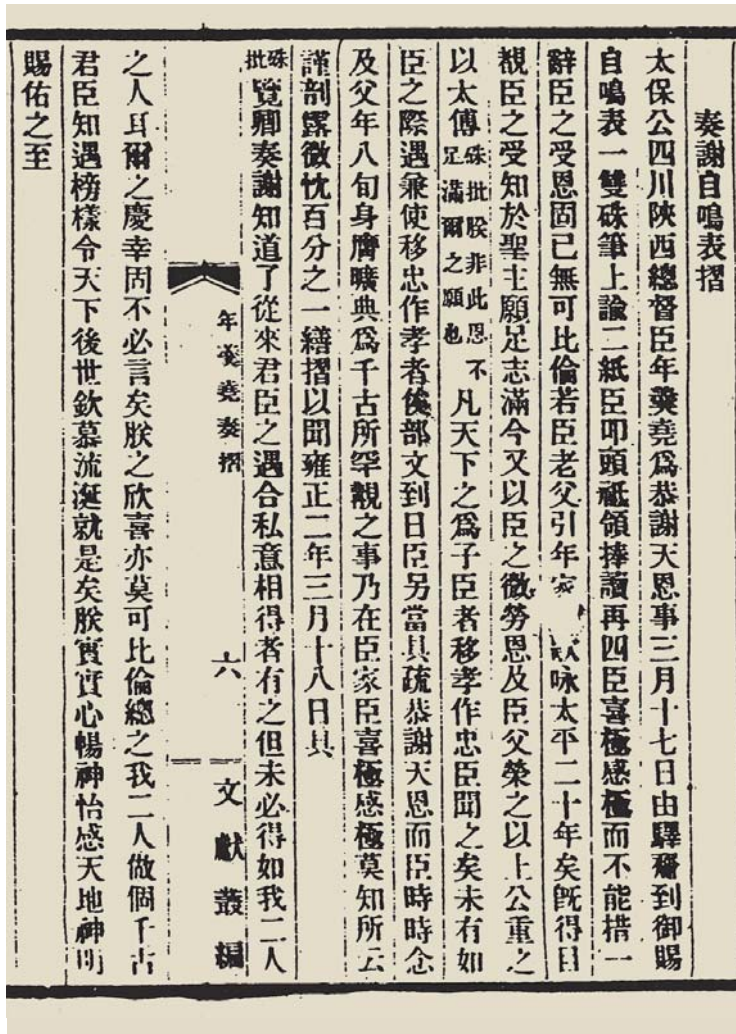 奏謝自鳴表摺
太保公四川陝西總督臣年羹堯爲恭謝天恩事三月十七日由驛齎到御賜
自鳴表一雙硃筆上諭二紙臣叩頭祗領捧讀再四臣喜極感極而不能措一
辭臣之受恩固已無可比倫若臣老父引年家咏太平二十年矣旣得目
覩臣之受知於聖主願足志滿今又以臣之微勞恩及臣父榮之以上公重之
以太傅硃批朕非此恩不足滿爾之願也凡天下之爲子臣者移孝作忠臣聞之矣未有如
臣之際遇兼使移忠作孝者俟部文到日臣另當具疏恭謝天恩而臣時時念
及父年八旬身膺曠典爲千古所罕覯之事乃在臣家臣喜極感極莫知所云
謹剖露微忱百分之一繕摺以聞雍正二年三月十八日具
硃批覽卿奏謝知道了從來君臣之遇合私意相得者有之但未必得如我二人
年羹堯奏摺 六 文獻叢編
之人耳爾之慶幸固不必言矣朕之欣喜亦莫可比倫總之我二人做個千古
君臣知遇榜樣令天下後世欽慕流涎就是矣朕實實心暢神怡感天地神明
賜佑之至